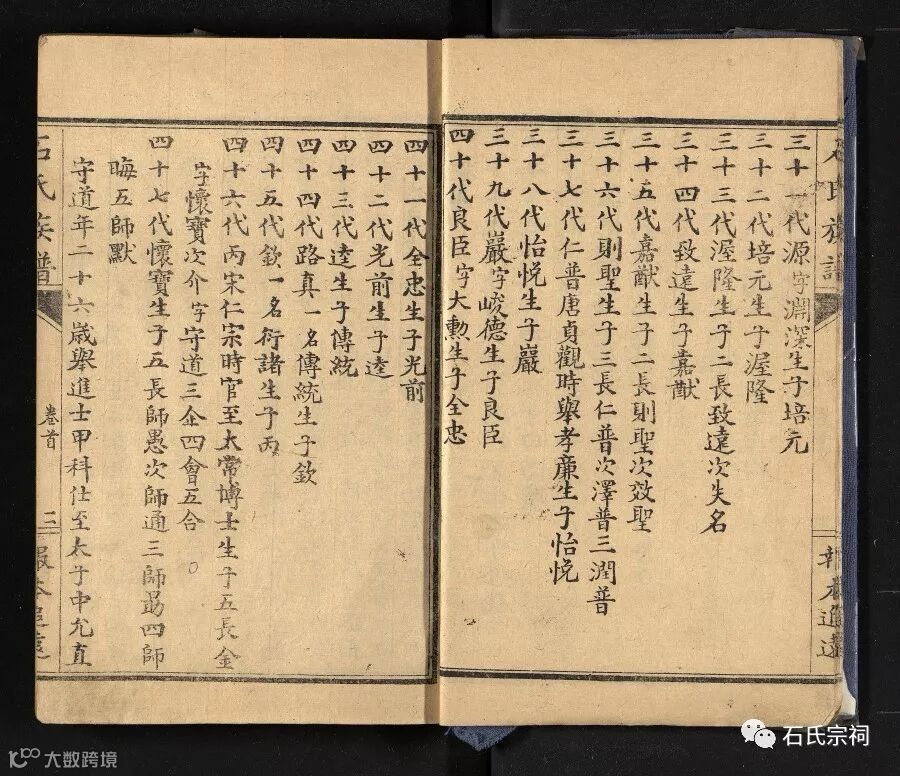 石氏族譜
三十一代源字淵深生子培元
三十二代培元生子渥隆
三十三代渥隆生子二長致遠次失名
三十四代致遠生子嘉猷
三十五代嘉猷生子二長則聖次效聖
三十六代則聖生子三長仁普次澤普三潤普
三十七代仁普唐貞觀時舉孝廉生子怡悅
三十八代怡悅生子巖
三十九代巖字峻德生子良臣
四十代良臣字大勲生子全忠
報本追遠
四十一代全忠生子光前
四十二代光前生子逵
四十三代逵生子傳統
四十四代路真一名傳統生子欽
四十五代欽一名衍諸生子丙
四十六代丙宋仁宗時官至太常博士生子五長金
字懷寶次介字守道三企四會五合
四十七代懷寶生子五長師愚次師通三師勗四師
晦五師默
守道年二十六歲舉進士甲科仕至太子中允直
石氏族譜
卷首
二
報本追遠
石氏宗祠
大数跨境